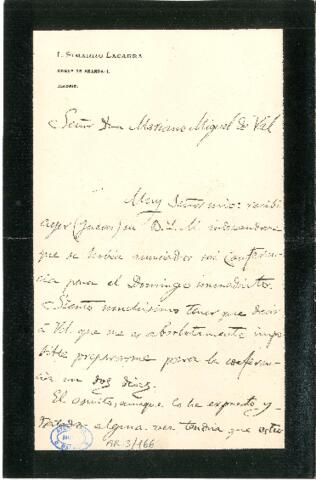 L. SIMARRO LACABRA
CONDE DE ARANDA 1.
MADRID.
Señor Don Mariano Miguel de Val
Muy Señor mio: recibí
ayer (Jueves) su B. L. M.
que se había anunciado mi conferen-
cia para el Domingo inmediato.
Siento muchísimo tener que decir
á Vd. que me es absolutamente impo-
sible prepararme para la conferen-
cia en dos días.
El asunto, aunque lo he expuesto y
tratado alguna vez tendría que
AR. 3/166